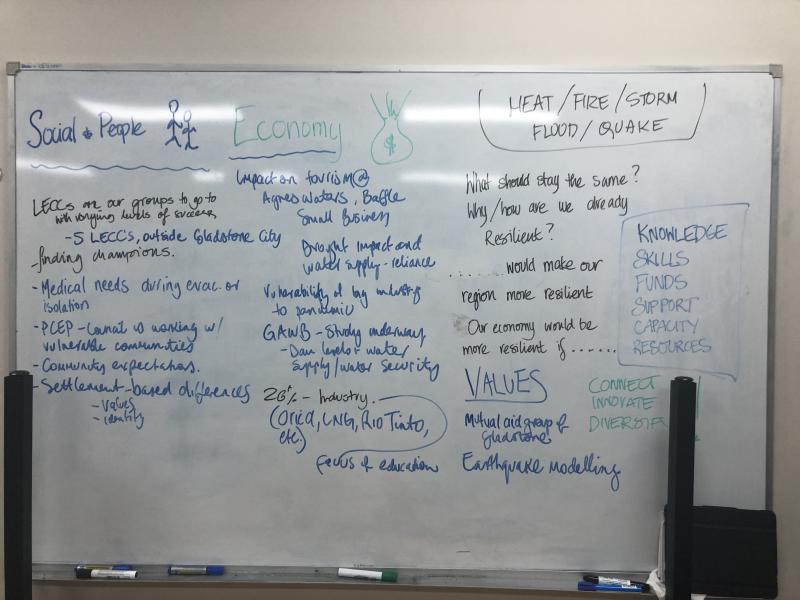 Social & People
LECCs are our groups to go to
with varying levels of success
- 5 LECCs, outside Gladstone City
- finding champions.
- Medical needs during evac. or
isolation
- PCEP - Council is working w/
vulnerable communities
- Community expectations.
- Settlement-based differences
- values
- identity
Economy
$
Impact on tourism @
Agnes Waters, Baffle
Small Business
Drought impact and
water supply - reliance
Vulnerability of big industry
to pandemic
GAWB - Study underway
- Dam levels + water
supply/water security
- Industry.
(Orica, LNG, Rio Tinto,
etc.)
focus of education
HEAT / FIRE / STORM
FLOOD / QUAKE
What should stay the same?
Why/how are we already
Resilient?
........ would make our
region more resilient
Our economy would be
more resilient if .......
VALUES
Mutual aid group of
Gladstone
Earthquake modelling
KNOWLEDGE
SKILLS
FUNDS
SUPPORT
CAPACITY
RESOURCES
CONNECT
INNOVATE